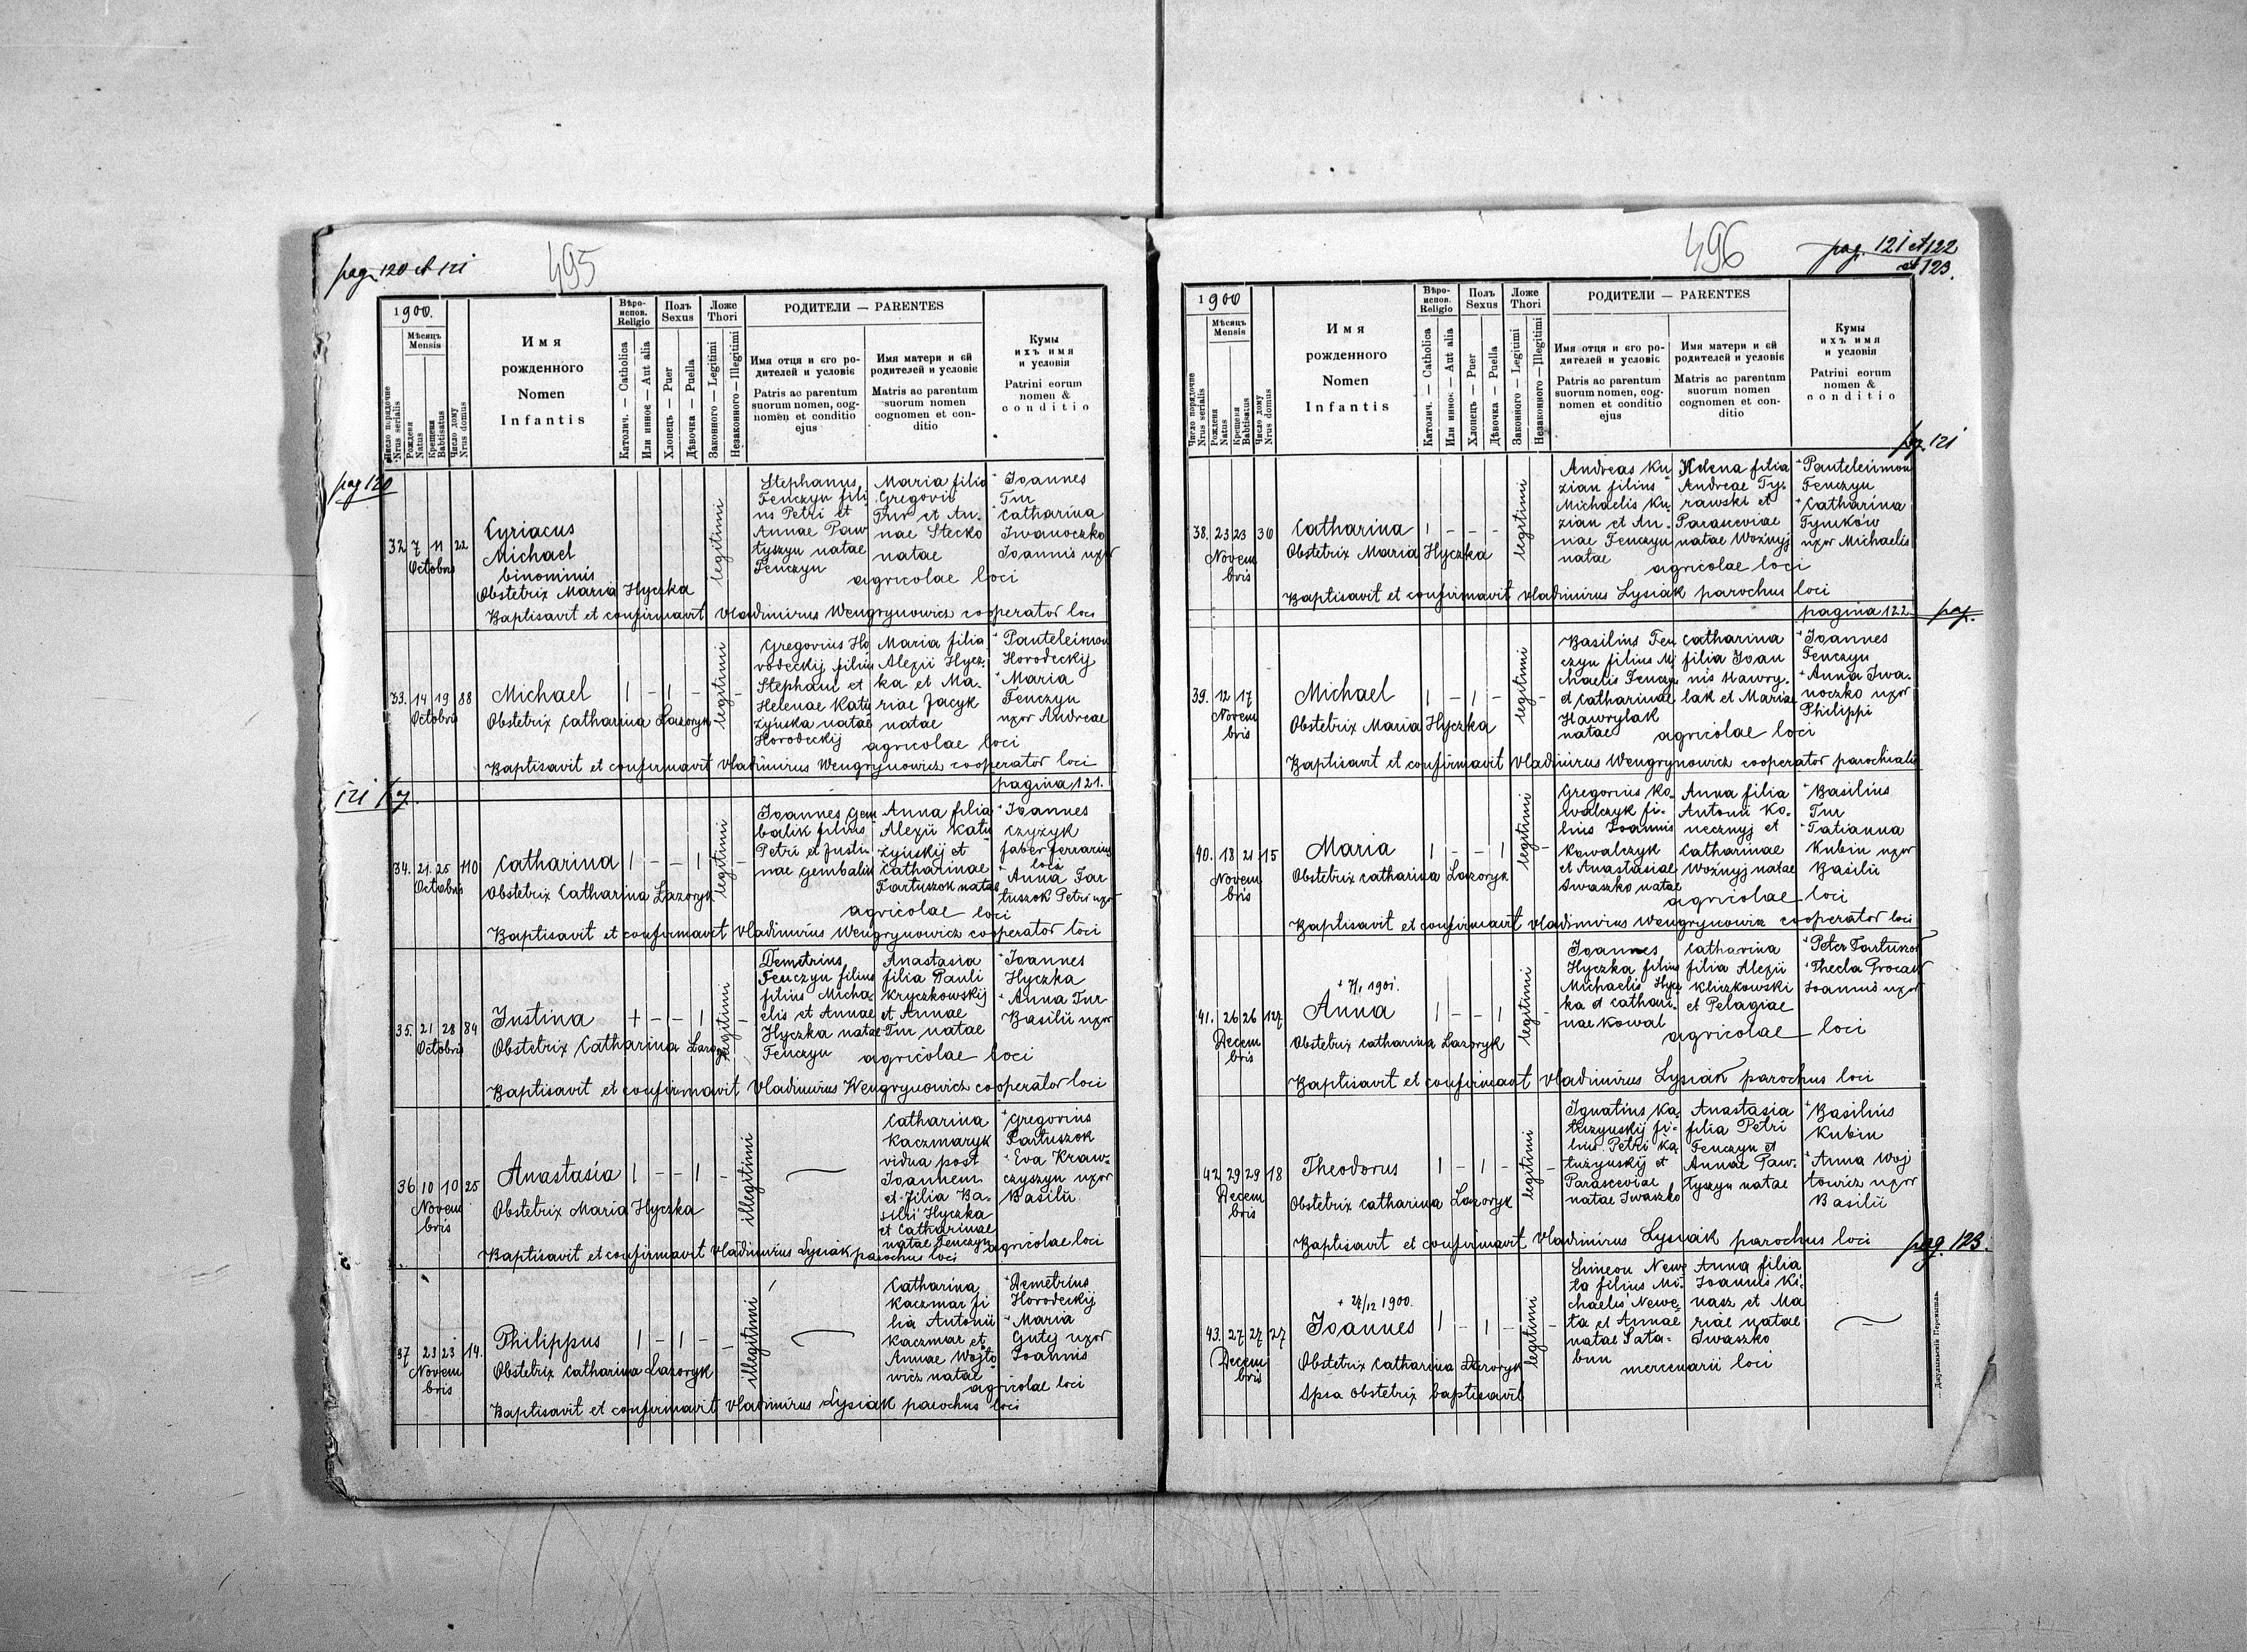 pag. 120 et 121
495
1900.
Мѣсяцъ
Mensis
Число порядочне
Nrus serialis
Рожденя
Natus
Крещеня
Babtisatus
Число дому
Nrus domus
Имя
рожденного
Nomen
Infantis
Вѣро-
испов.
Religio
Католич. — Catholica
Или инноє — Aut alia
Полъ
Sexus
Хлопець — Puer
Дѣвочка — Puella
Ложе
Thori
Законного — Legitimi
Незаконного — Illegitimi
РОДИТЕЛИ — PARENTES
Имя отця и єго ро-
дителей и условіє
Patris ac parentum
suorum nomen, cog-
nomen et conditio
ejus
Имя матери и єй
родителей и условіє
Matris ac parentum
suorum nomen
cognomen et con-
ditio
Кумы
ихъ имя
и условія
Patrini eorum
nomen &
conditio
pag 120
32 7 11 22
Octobris
Cyriacus
Michael
binominis
Obstetrix Maria Hyczka
legitimi
Stephanus
Fenczyn fili
us Petri et
Annae Paw
tyszyn natae
Fenczyn
Maria filia
Gregorii
Tur et An-
nae Stecko
natae
agricolae loci
Joannes
Tur
Catharina
Iwanoczko
Joannis uxor
Baptisavit et confirmavit Vladimirus Wengrynowicz cooperator loci
33. 14 19 88
Octobris
Michael | - | -
Obstetrix Catharina Lazoryk
legitimi -
Gregorius Ho
rodeckij filius
Stephani et
Helenae Katu
zyńska natae
Horodeckij
Maria filia
Alexii Hycz-
ka et Ma-
riae Jacyk
natae
agricolae loci
Panteleimon
Horodeckij
Maria
Fenczyn
uxor Andreae
Baptisavit et confirmavit Vladimirus Wengrynowicz cooperator loci
pagina 121.
121 pg.
34. 21. 25 110
Octobris
Catharina | - - |
Obstetrix Catharina Lazoryk
legitimi -
Joannes Gem
balik filius
Petri et Justi-
nae Gembalin
Anna filia
Alexii Katu
zyńskij et
Catharinae
Fartuszok natae
agricolae loci
Joannes
Czyzyk
faber ferrarius
loci
Anna Far
tuszok Petri uxor
Baptisavit et confirmavit Vladimirus Wengrynowicz cooperator loci
35. 21 28 84
Octobris
Justina + - - |
Obstetrix Catharina Lazoryk
legitimi -
Demetrius
Fenczyn filius
filius Micha-
elis et Annae
Hyczka natae
Fenczyn
Anastasia
filia Pauli
Kryczkowskij
et Annae
Tur natae
agricolae loci
Joannes
Hyczka
Anna Tur
Basilii uxor
Baptisavit et confirmavit Vladimirus Wengrynowicz cooperator loci
36 10 10 25
Novem
bris
Anastasia | - - | -
Obstetrix Maria Hyczka
illegitimi
Catharina
Kaczmaryk
vidua post
Joannem
et filia Ba-
silii Hyczka
et Catharinae
natae Fenczyn
agricolae loci
Gregorius
Fartuszok
Eva Kraw-
czyszyn uxor
Basilii
Baptisavit et confirmavit Vladimirus Lysiak parochus loci
37 23 23 14.
Novem
bris
Philippus | - | - -
Obstetrix Catharina Lazoryk
illegitimi
Catharina
Kaczmar fi
lia Antonii
Kaczmar et
Annae Wojto
wicz natae
agricolae loci
Demetrius
Horodeckij
Maria
Gutej uxor
Joannis
Baptisavit et confirmavit Vladimirus Lysiak parochus loci
496
pag. 121 et 122
et 123.
1900
Мѣсяцъ
Mensis
Число порядочне
Nrus serialis
Рожденя
Natus
Крещеня
Babtisatus
Число дому
Nrus domus
Имя
рожденного
Nomen
Infantis
Вѣро-
испов.
Religio
Католич. — Catholica
Или инноє — Aut alia
Полъ
Sexus
Хлопець — Puer
Дѣвочка — Puella
Ложе
Thori
Законного — Legitimi
Незаконного — Illegitimi
РОДИТЕЛИ — PARENTES
Имя отця и єго ро-
дителей и условіє
Patris ac parentum
suorum nomen, cog-
nomen et conditio
ejus
Имя матери и єй
родителей и условіє
Matris ac parentum
suorum nomen
cognomen et con-
ditio
Кумы
ихъ имя
и условія
Patrini eorum
nomen &
conditio
pg. 121
38. 23 23 30
Novem
bris
Catharina | - - -
Obstetrix Maria Hyczka
legitimi
Andreas Ku
zian filius
Michaelis Ku-
zian et An-
nae Fenczyn
natae
Helena filia
Andreae Ty-
rawski et
Parasceviae
natae Woznyj
agricolae loci
Panteleimon
Fenczyn
Catharina
Tymków
uxor Michaelis
Baptisavit et confirmavit Vladimirus Lysiak parochus loci
pagina 122
pag.
39. 12 17
Novem
bris
Michael | - | -
Obstetrix Maria Hyczka
legitimi -
Basilius Fen
czyn filius Mi
chaelis Fenczyn
et Catharinae
Hawrylak
natae
Catharina
filia Joan
nis Hawry-
lak et Mariae
agricolae loci
Joannes
Fenczyn
Anna Iwa-
noczko uxor
Philippi
Baptisavit et confirmavit Vladimirus Wengrynowicz cooperator parochialis
40. 18 21 15
Novem
bris
Maria | - - |
Obstetrix Catharina Lazoryk
legitimi -
Gregorius Ko-
walczyk fi-
lius Joannis
Kowalczyk
et Anastasiae
Iwaszko natae
Anna filia
Antonii Ko-
necznyj et
Catharinae
Woźnyj natae
agricolae loci
Basilius
Tur
Tatianna
Kubin uxor
Basilii
Baptisavit et confirmavit Vladimirus Wengrynowicz cooperator loci
41. 26 26 127
Decem
bris
Anna | - - |
Obstetrix Catharina Lazoryk
legitimi -
Joannes
Hyczka filius
Michaelis Hycz
ka et Cathari-
nae Kowal
Catharina
filia Alexii
Kliczkowski
et Pelagiae
agricolae loci
Peter Fartuszok
Thecla Procaw
Joannis uxor
Baptisavit et confirmavit Vladimirus Lysiak parochus loci
42 29 29 18
Decem
bris
Theodorus | - | -
Obstetrix Catharina Lazoryk
legitimi -
Ignatius Ka-
tuzynskij fi-
lius Petri Ka
tuzynskij et
Parasceviae
natae Iwaszko
Anastasia
filia Petri
Fenczyn et
Annae Paw-
tyszyn natae
Basilius
Kubin
Anna Woj
towicz uxor
Basilii
Baptisavit et confirmavit Vladimirus Lysiak parochus loci
pag. 123.
43. 27 27 27
Decem
bris
+ 27/12 1900.
Joannes | - | -
Obstetrix Catharina Lazoryk
Ipsa obstetrix baptisavit
legitimi -
Simeon Newe
ta filius Mi-
chaelis Newe-
ta et Annae
natae Sata-
bun
Anna filia
Joannis Ki-
nasz et Ma
riae natae
Iwaszko
mercenarii loci